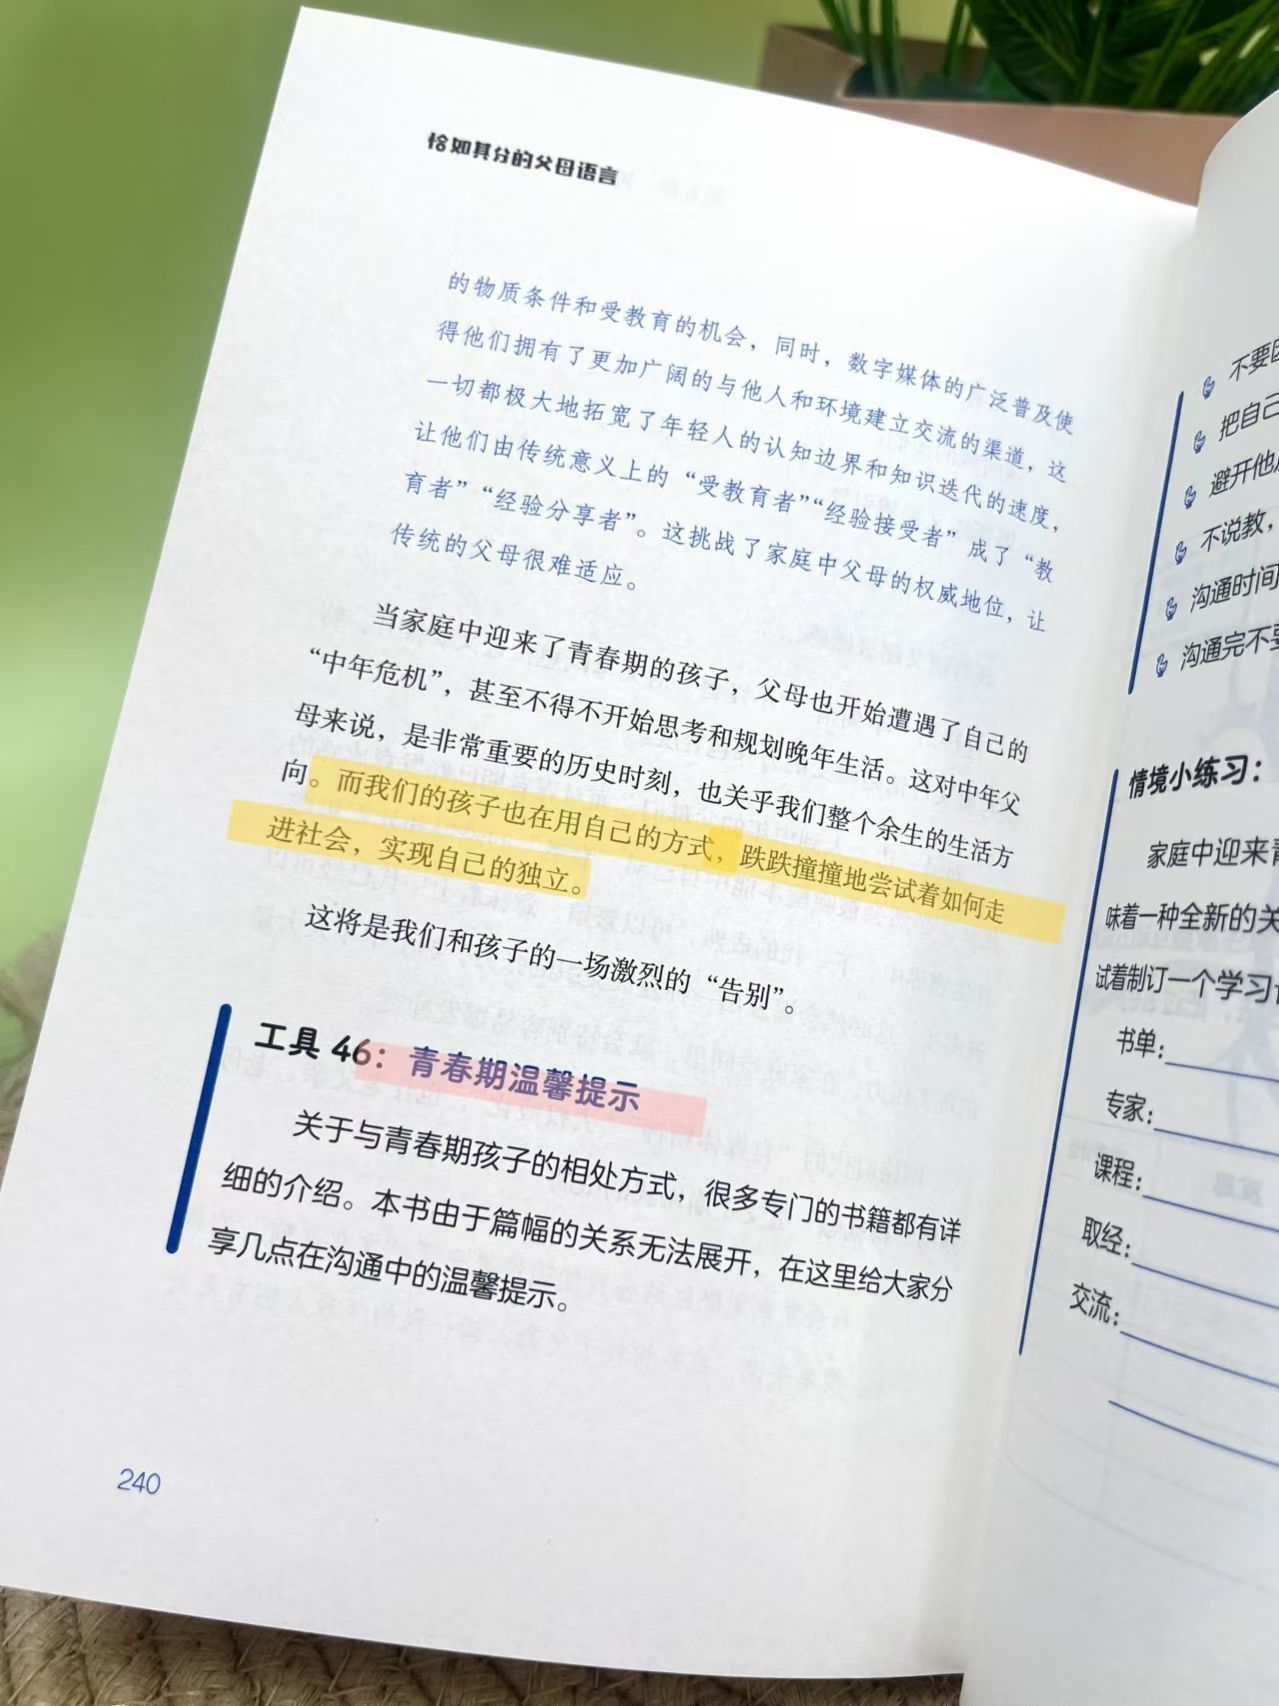 恰如其分的父母语言
的物质条件和受教育的机会，同时，数字媒体的广泛普及使
得他们拥有了更加广阔的与他人和环境建立交流的渠道，这
一切都极大地拓宽了年轻人的认知边界和知识迭代的速度，
让他们由传统意义上的“受教育者”“经验接受者”成了“教
育者”“经验分享者”。这挑战了家庭中父母的权威地位，让
传统的父母很难适应。
当家庭中迎来了青春期的孩子，父母也开始遭遇了自己的
“中年危机”，甚至不得不开始思考和规划晚年生活。这对中年父
母来说，是非常重要的历史时刻，也关乎我们整个余生的生活方
向。而我们的孩子也在用自己的方式，跌跌撞撞地尝试着如何走
进社会，实现自己的独立。
这将是我们和孩子的一场激烈的“告别”。
工具 46：青春期温馨提示
关于与青春期孩子的相处方式，很多专门的书籍都有详
细的介绍。本书由于篇幅的关系无法展开，在这里给大家分
享几点在沟通中的温馨提示。
240
不要
把自己
避开他
不说教，
沟通时间
沟通完不要
情境小练习：
家庭中迎来
味着一种全新的关
试着制订一个学习
书单：
专家：
课程：
取经：
交流：